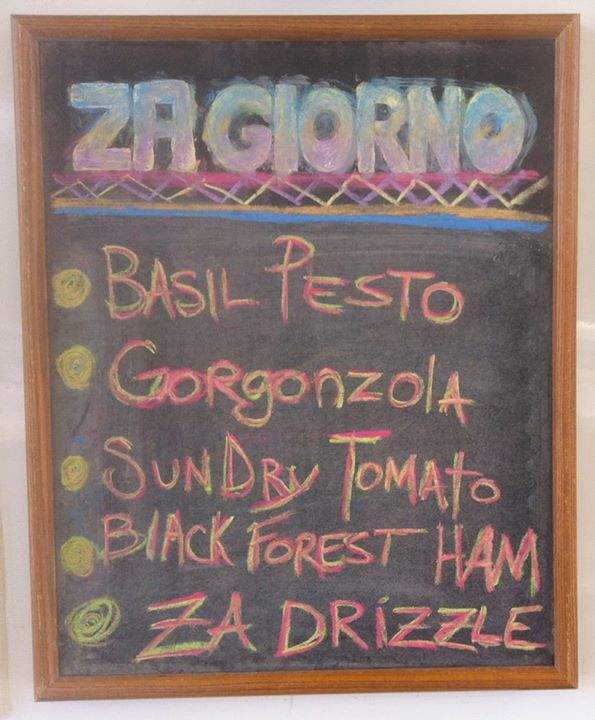 ZA GIORNO
BASIL PESTO
GORgonzolA
SUNDRy TOMATO
BlACK FOREST HAM
ZA DRiZZLE